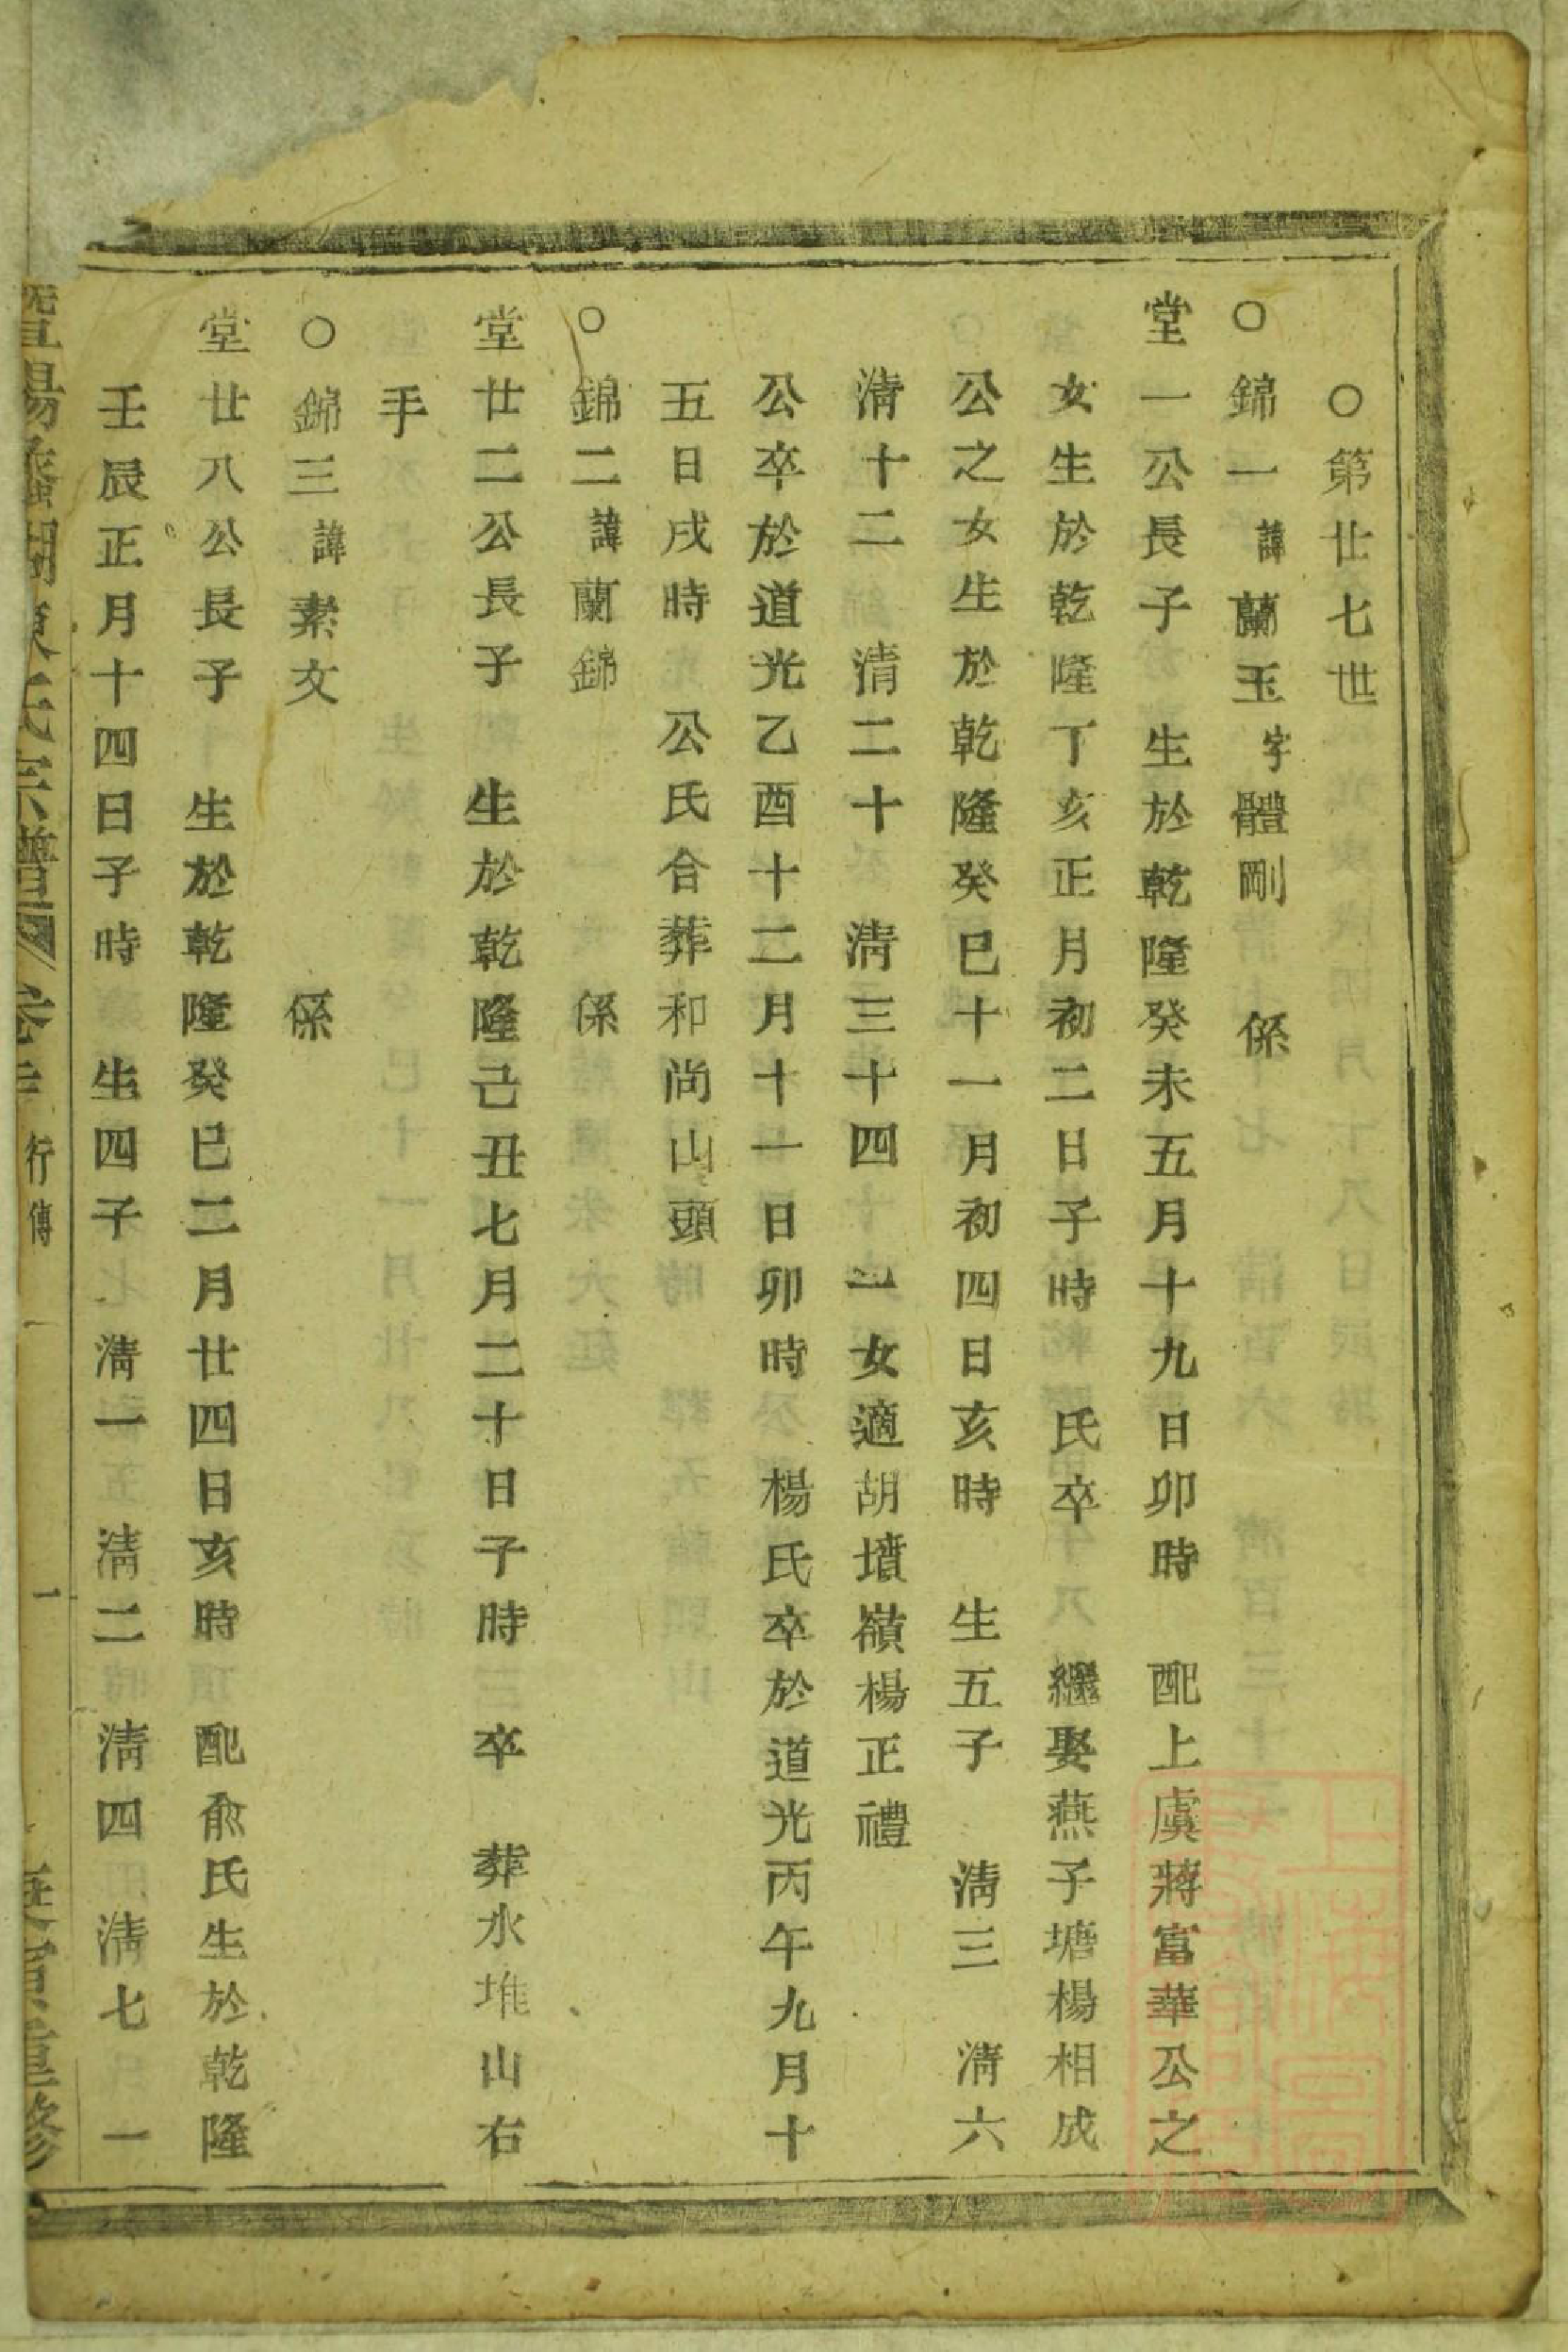 ○第廿七世
○錦一諱蘭玉字體剛 係
堂一公長子 生於乾隆癸未五月十九日卯時 配上虞蔣富華公之
女生於乾隆丁亥正月初二日子時 氏卒 繼娶燕子塘楊相成
公之女生於乾隆癸巳十一月初四日亥時 生五子 淸三 淸六
淸十二 淸二十 淸三十四 一女適胡墳嶺楊正禮
公卒於道光乙酉十二月十一日卯時 楊氏卒於道光丙午九月十
五日戌時 公氏合葬和尚山頭
○錦二諱蘭錦 係
堂廿二公長子 生於乾隆己丑七月二十日子時 卒 葬水堆山右
手
○錦三諱素文 係
堂廿八公長子 生於乾隆癸巳二月廿四日亥時 配俞氏生於乾隆
壬辰正月十四日子時 生四子 淸一 淸二 淸四 淸七 一
暨陽 湖 氏宗譜 卷 行傳 一 重修